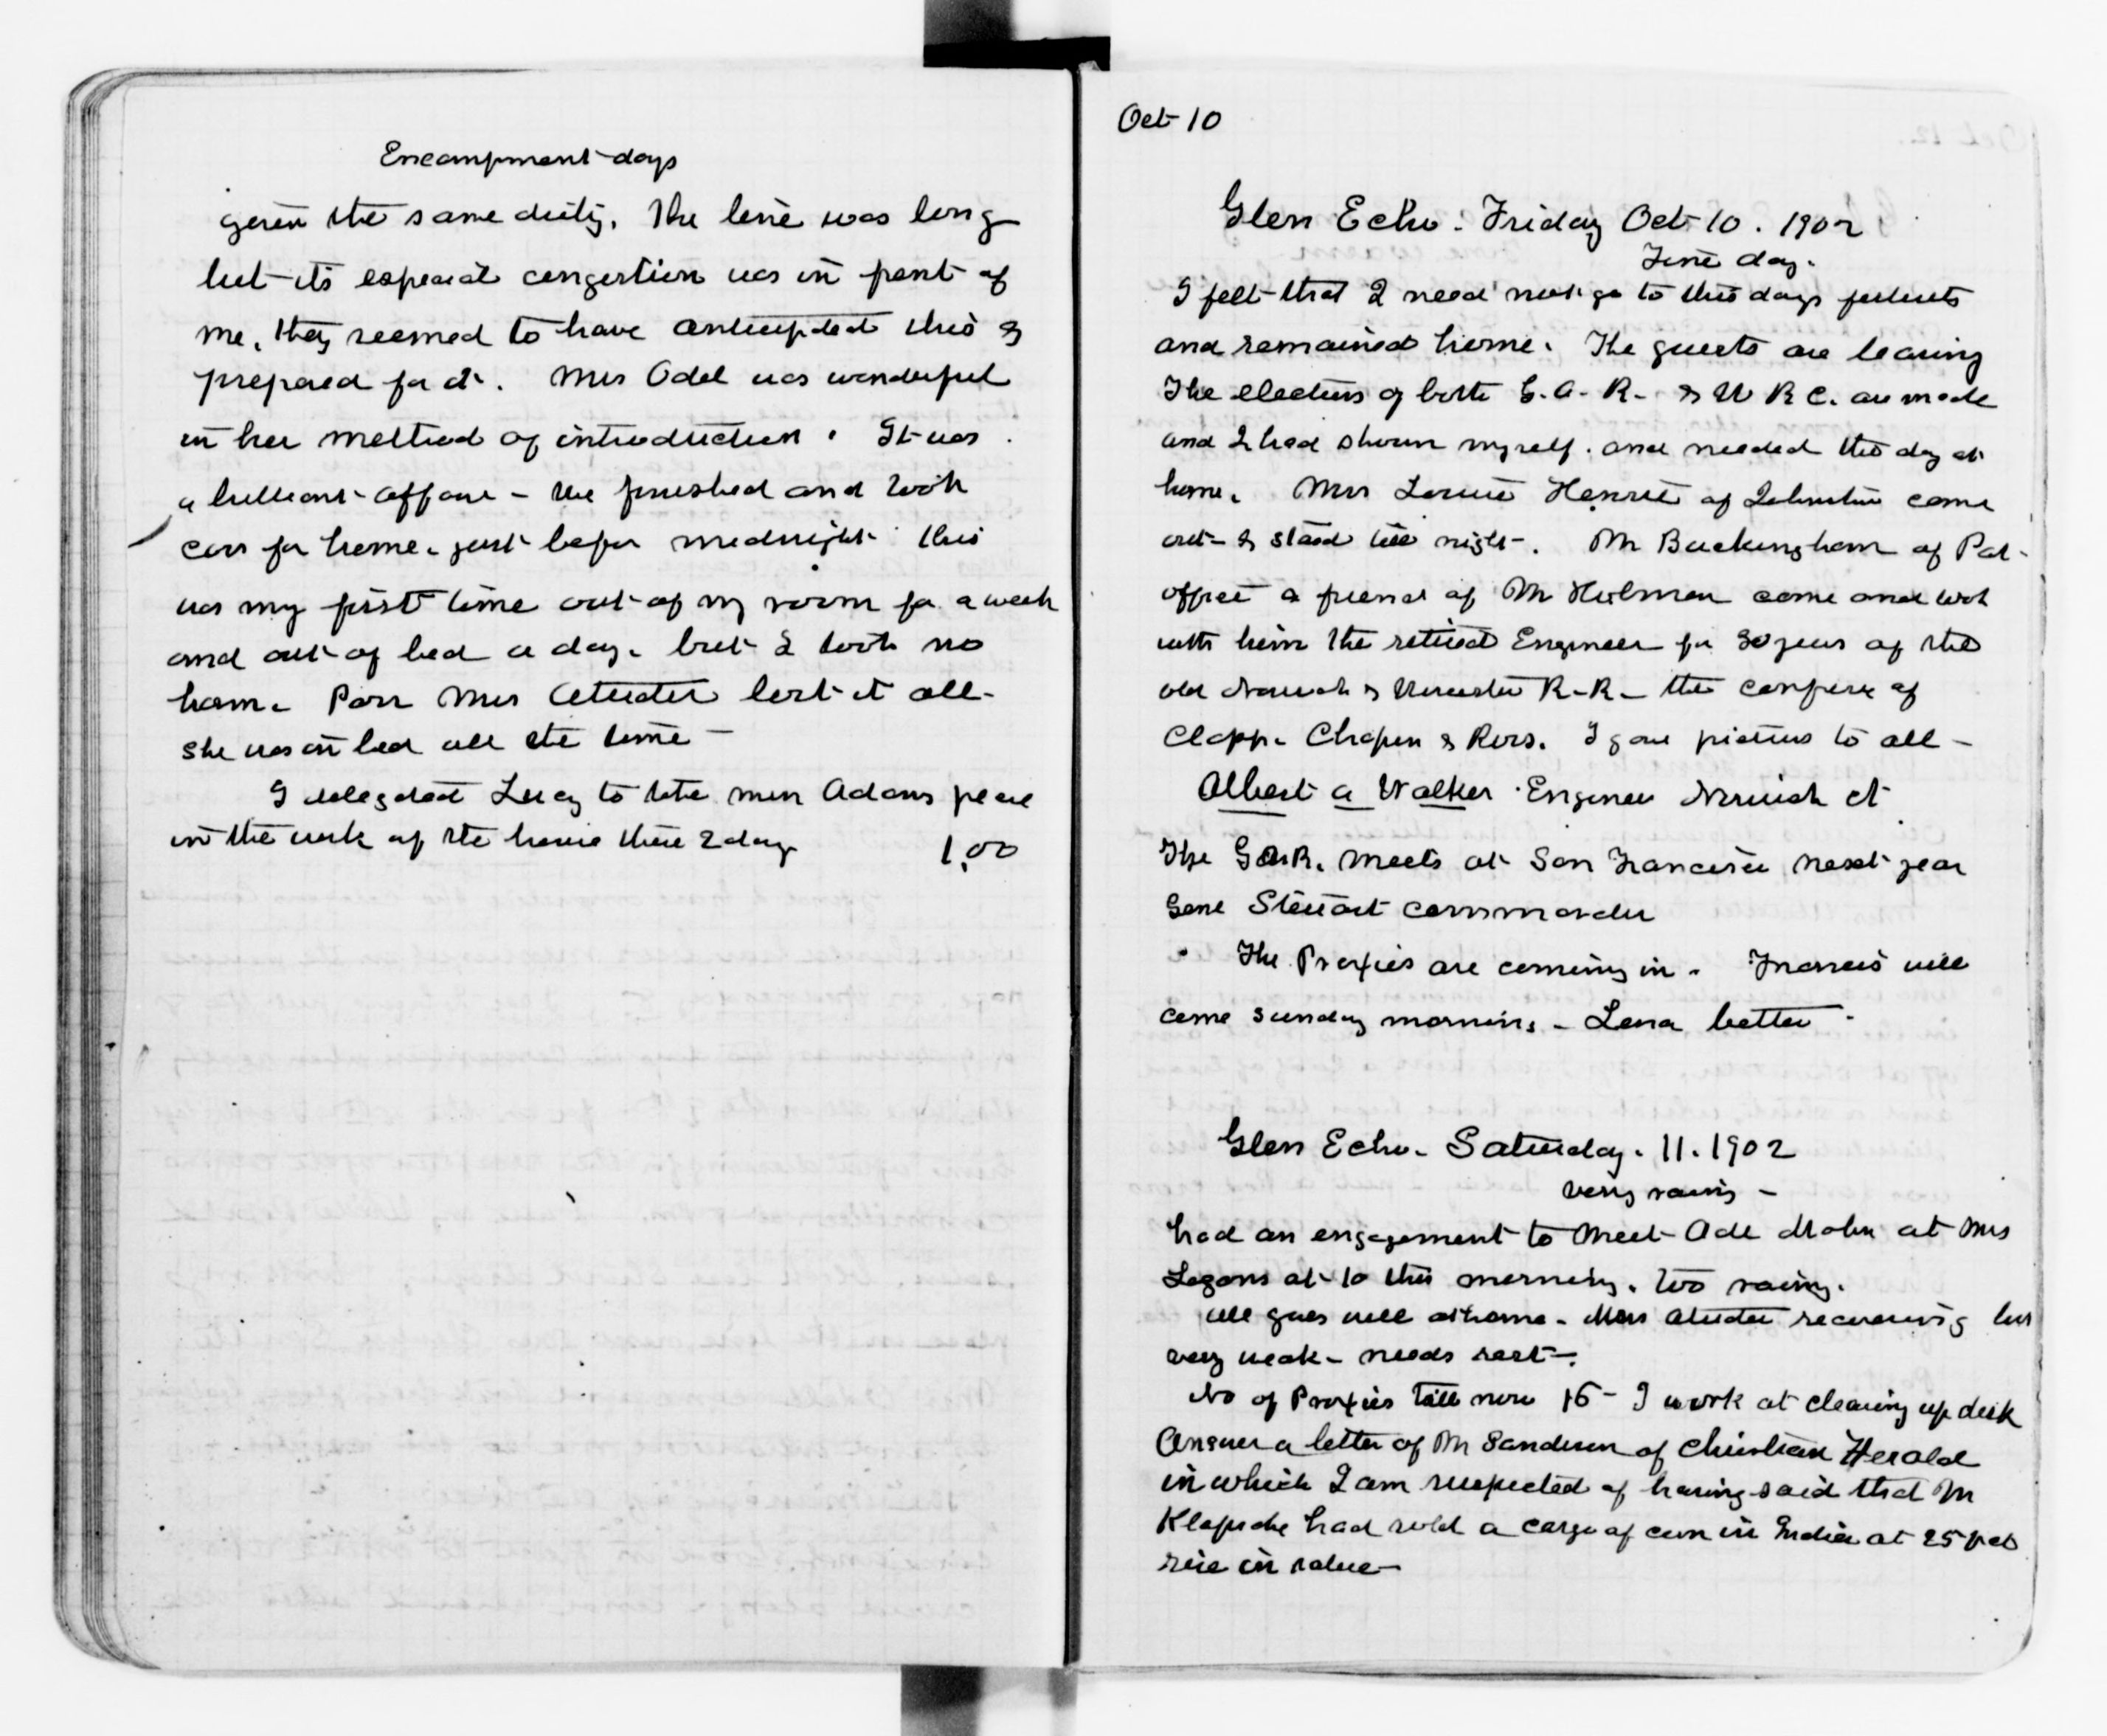 Encampment days
given the same duty. The line was long
but its especial congestion was in front of
me, they seemed to have anticipated this &
prepared for it. Mrs Odel was wonderful
in her method of introduction. It was
a brilliant affair - We finished and took
cars for home. just before midnight this
was my first time out of my room for a week
and out of bed a day. but I took no
harm. Poor Mrs Atwater lost it all -
She was in bed all the time -
I delegated Lucy to take men Adams place
in the work of the house there 2 days 1.00
Oct 10
Glen Echo. Friday Oct 10. 1902
Fine day.
I felt that I need not go to this days
and remained home. The guests are leaving
The elections of both G. A. R. & W R C. are made
and I had shown myself. and needed the day at
home. Mrs Henrie of come
out & staid till night. Mr Buckingham of Pat -
office a friend of Mr come and
with him the retired Engineer for 30 years of the
old Norwich & Worcester R-R - the of
Clapp. Chapin & I gave pictures to all -
Albert A Walker Engineer Norwich Ct
The G A R. meets at San Francisco next year
Genl Stewart commander
The Proxies are coming in. Francis will
come Sunday morning - Lena better -
Glen Echo. Saturday. 11. 1902
very rainy -
had an engagement to meet at Mrs
Logans at 10 this morning. too rainy.
All goes well at home. Mrs Atwater recovering but
very weak - needs rest -.
No of Proxies till now 16 - I work at clearing up desk
Answer a letter of Mr Sanderson of Christian Herald
in which I am suspected of having said that Mr
Klopsche had sold a cargo of corn in India at 25 pct
rise in value -